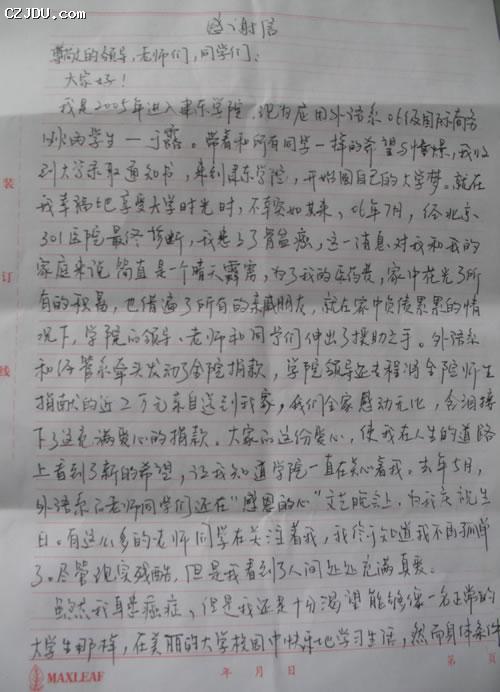 CZJDU.com
感谢信
尊敬的领导、老师们、同学们：
大家好！
我是2005年进入建东学院，现为应用外语系06级国际商务
班的学生—于露。带着和所有同学一样的希望与憧憬，我收
到大学录取通知书，来到建东学院，开始圆自己的大学梦。就在
我幸福地享受大学时光时，不幸突如其来，06年7月，经北京
301医院最终诊断，我患了骨盆癌，这一消息对我和我的
家庭来说简直是一个晴天霹雳，为了我的医药费，家中花光了所
有的积蓄，也借遍了所有的亲戚朋友，就在家中负债累累的情
况下，学院的领导、老师和同学们伸出了援助之手。外语系
和经管系牵头发动了全院捐款，学院领导还专程将全院师生
捐献的近2万元亲自送到我家，我们全家感动无比，含泪接
下了这充满爱心的捐款。大家的这份爱心，使我在人生的道路
上看到了新的希望，让我知道学院一直在关心着我。去年5月，
外语系的老师同学们还在“感恩的心”文艺晚会上，为我庆祝生
日。有这么多的老师同学在关注着我，我终于知道我不再孤单
了。尽管现实残酷，但是我看到了人间处处充满真爱。
虽然我身患癌症，但是我还是十分渴望能够像一名正常的
大学生那样，在美丽的大学校园中快乐地学习生活，然而身体条件
装
订
线
MAXLEAF
年 月 日
第 页